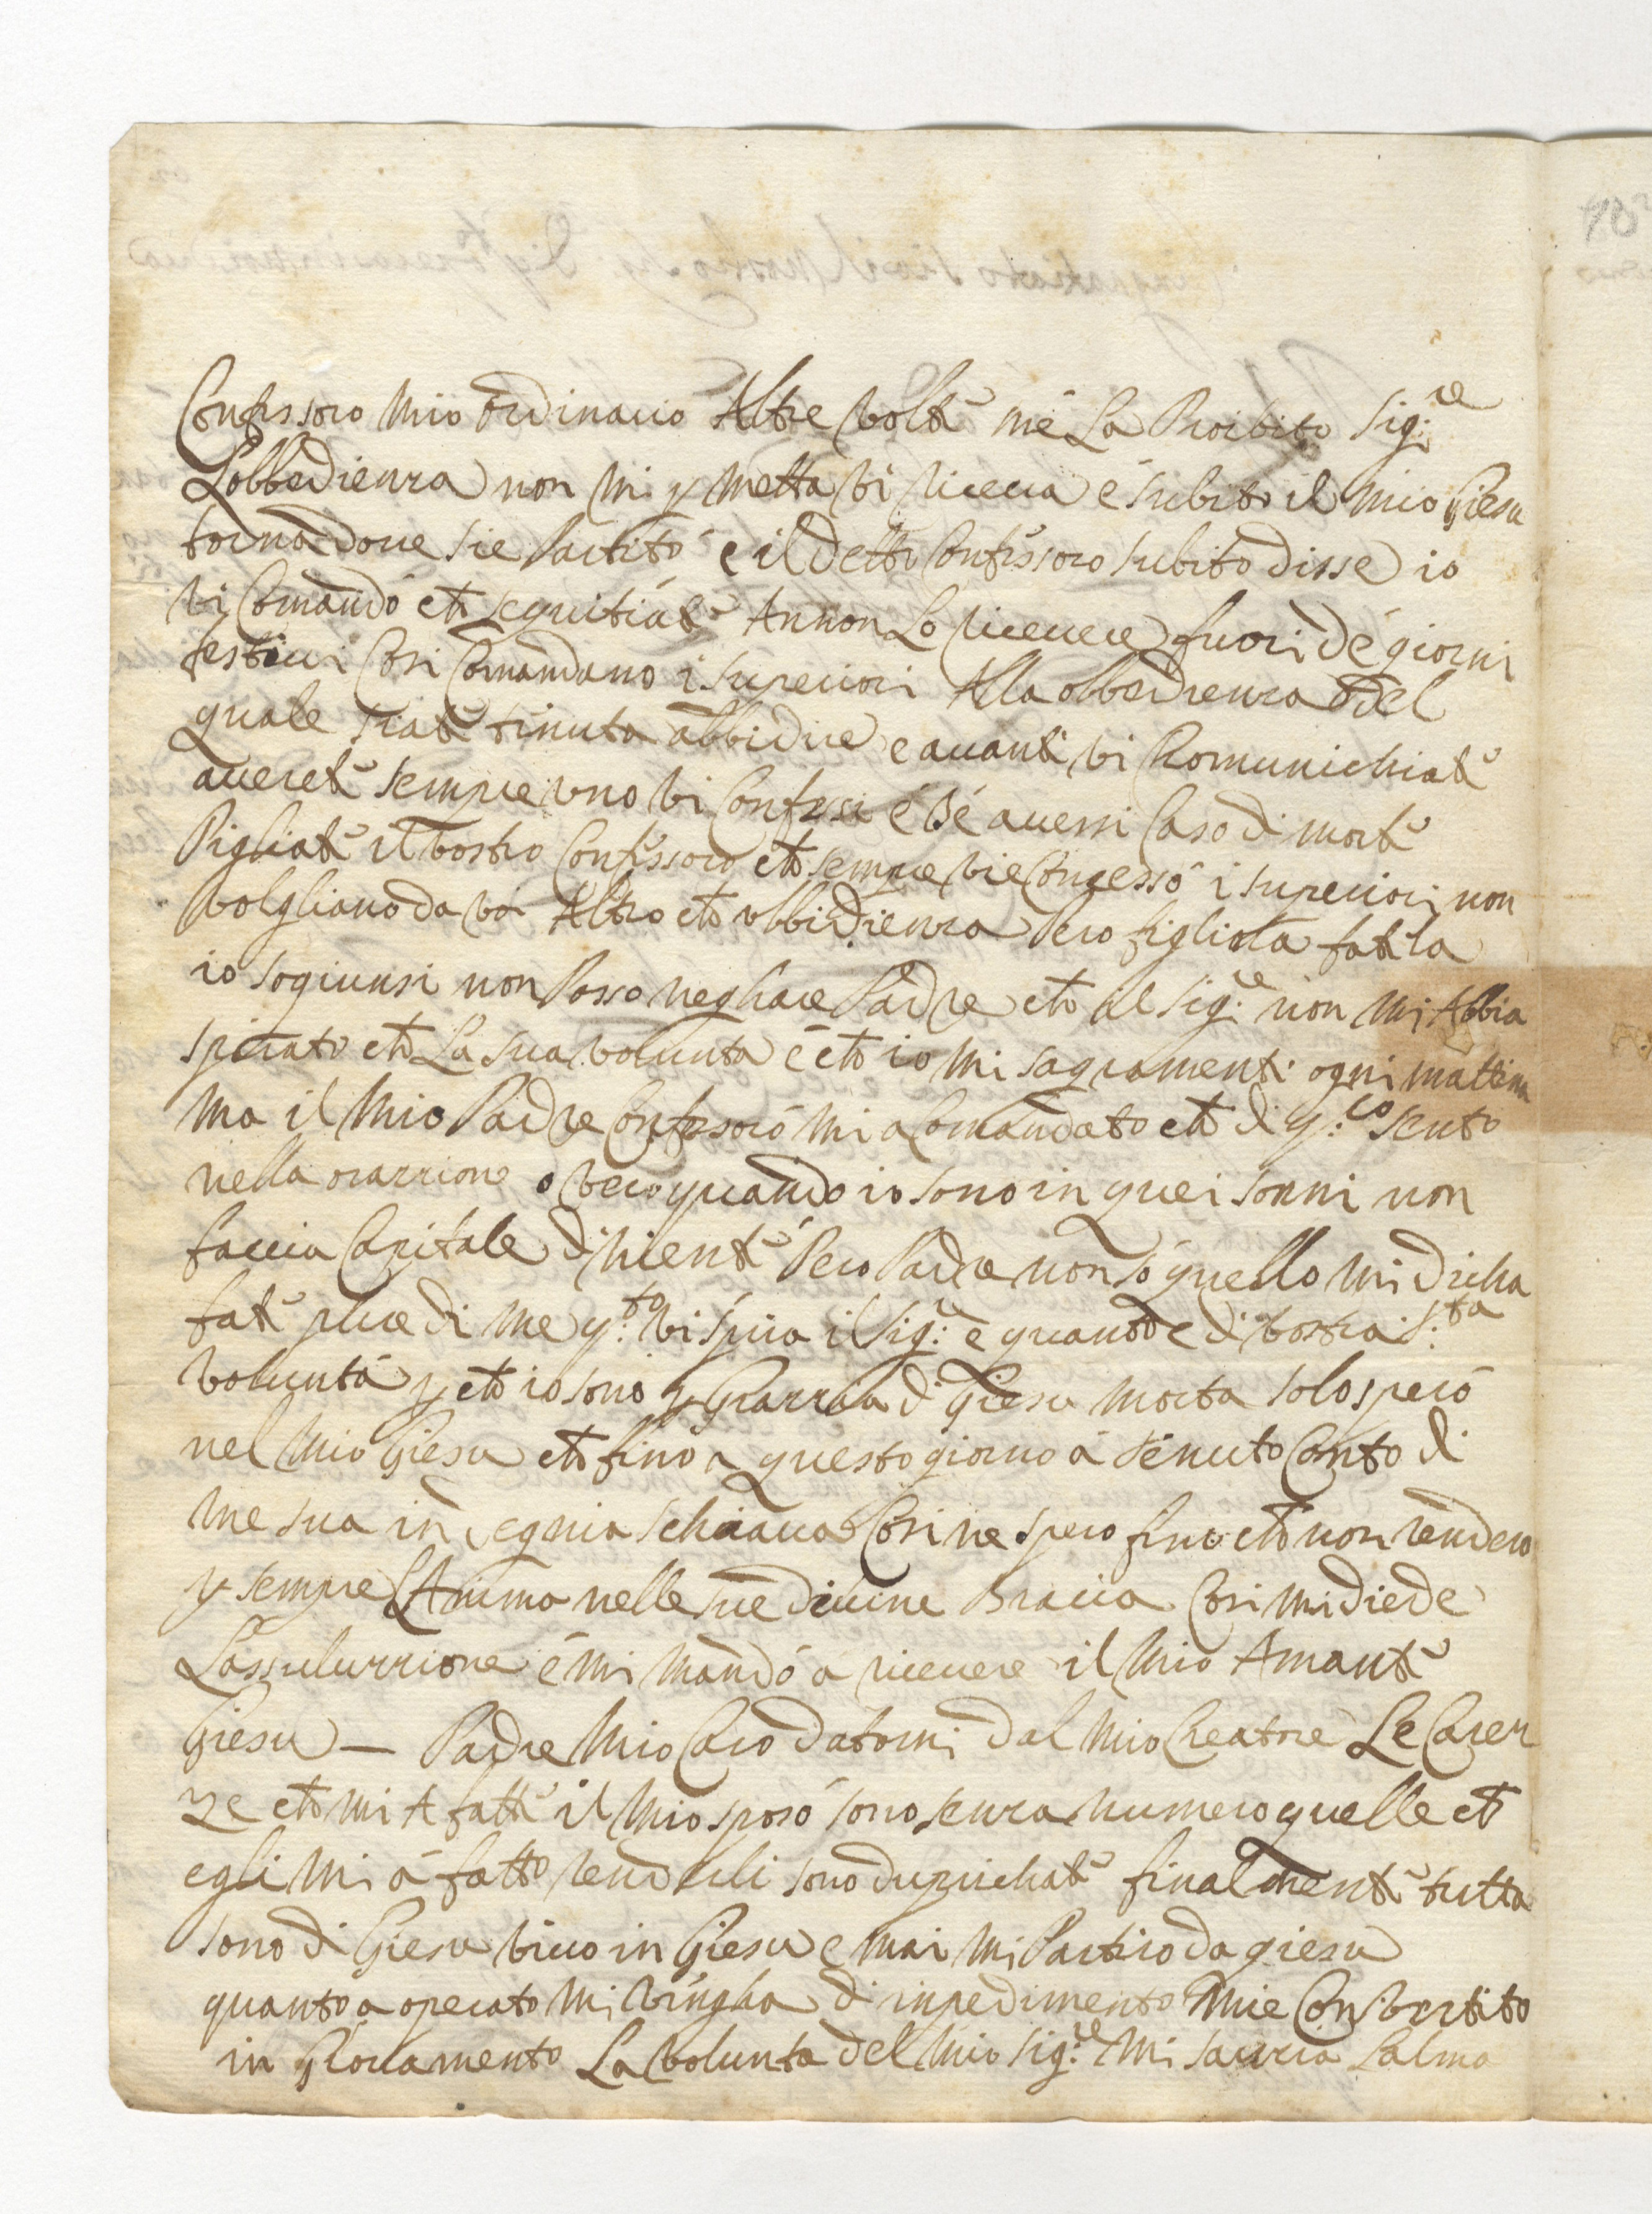 Confessoro mio ordinario Altre volte me La Proibito Sig:re
Lobbedienza non mi p metta vi riceva e subito il mio Giesu
torna dove sie Partito e il detto Confessoro subito disse io
vi Comando che seguitiate Annon Lo ricevere fuori de giorni
festivi Cosi Comandano i superiori Alla obbedienza del
quale siate tinuta abbidire e avanti vi Chomunichiate
averete sempre uno vi Confessi e se avessi Caso di morte
Pigliate il vostro Confessoro che sempre vie Concesso i superiori non
volgliano da voi Altro che ubbidienza Pero figliola fatela
io sogiunsi non Posso neghare Padre che il Sig:re non mi Abbia
spirato che La sua volunta e che io mi sagramenti ogni mattina
ma il mio Padre Confessoro mi a Comandato che di q:to sento
nella orazzione o vero quando io sono in quei sonni non
faccia Capitale di niente Pero Padre non so quello mi dicha
fate pure di me q:to vi spira il Sig:re e quando e di vostra S:ta
volunta p che io sono p Grazzia di Giesu morta solo spero
nel mio Giesu che fino a questo giorno a tenuto Conto di
me sua indegnia schiava Cosi ne spero fino che non rendero
p sempre LAnima nelle sue divine Braccia Cosi mi diede
Lassuluzzione e mi mando a ricevere il mio Amante
Giesu — Padre mio Caro datomi dal mio Creatore Le Carez
ze che mi A fatte il mio sposo sono senza numero quelle che
egli mi a fatto rendeli sono duprichate finalmente tutta
sono di Giesu vivo in Giesu e mai mi Partiro da giesu
quanto a operato mi vingha di inpedimento mie Convertito
in Giovamento La volunta del mio Sig:re mi sazzia Lalma